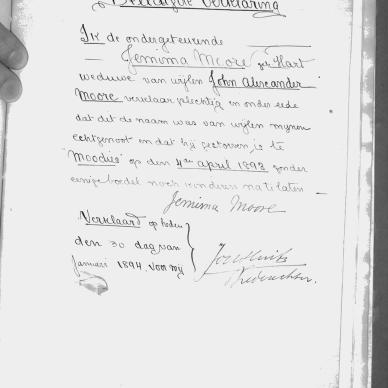 Beëedigde Verklaring
Ik de ondergeteekende
Jemima Moore geb Hart
weduwe van wijlen John Alexander
Moore verklaar plechtig en onder eede
dat dit de naam was van wijlen mijnen
echtgenoot en dat hij gestorven is te
"Moodies" op den 4den april 1893 zonder
eenige boedel noch kinderen na te laten
Jemima Moore
Verklaard op heden
den 30 dag van
Januari 1894, voor mij